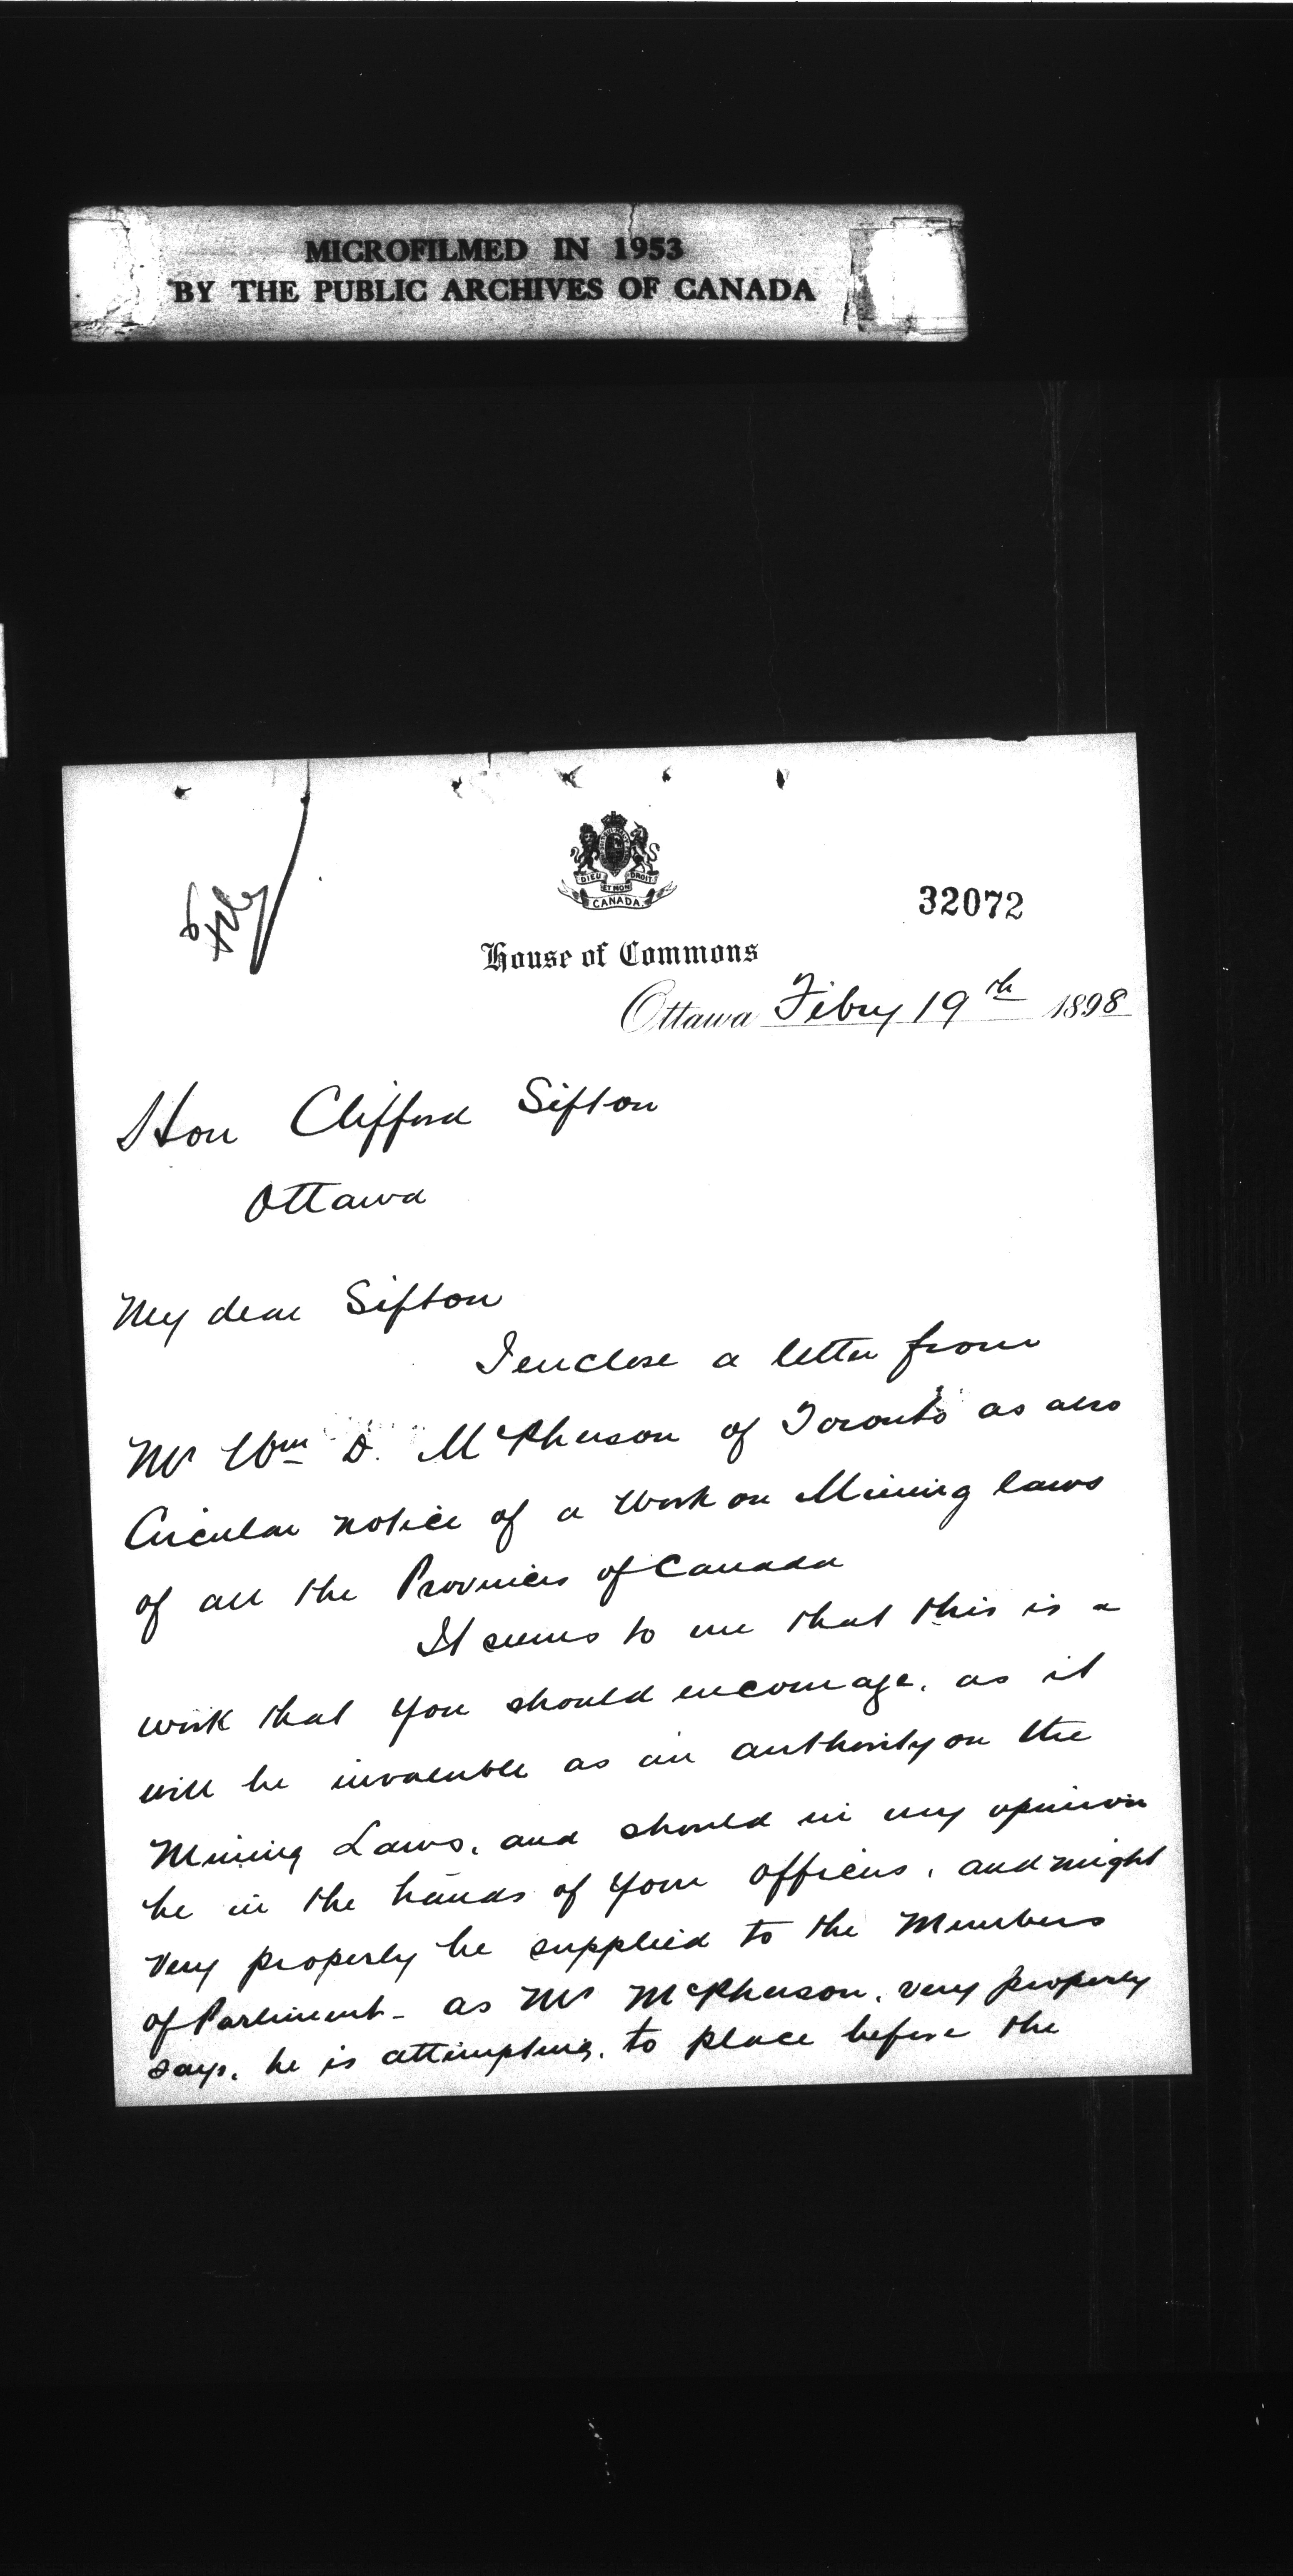 MICROFILMED IN 1953
BY THE PUBLIC ARCHIVES OF CANADA
DIEU ET MON DROIT
CANADA
32072
House of Commons
Ottawa Febry 19th 1898
Hon Clifford Sifton
Ottawa
My dear Sifton
I enclose a letter from
Mr Wm D. McPherson of Toronto as also
Circular notice of a Work on Mining laws
of all the Provinces of Canada
It seems to me that this is a
work that you should encourage, as it
will be invaluable as an authority on the
Mining Laws, and should in my opinion
be in the hands of your officers, and might
very properly be supplied to the Members
of Parliment - as Mr McPherson, very properly
says, he is attempting, to place before the